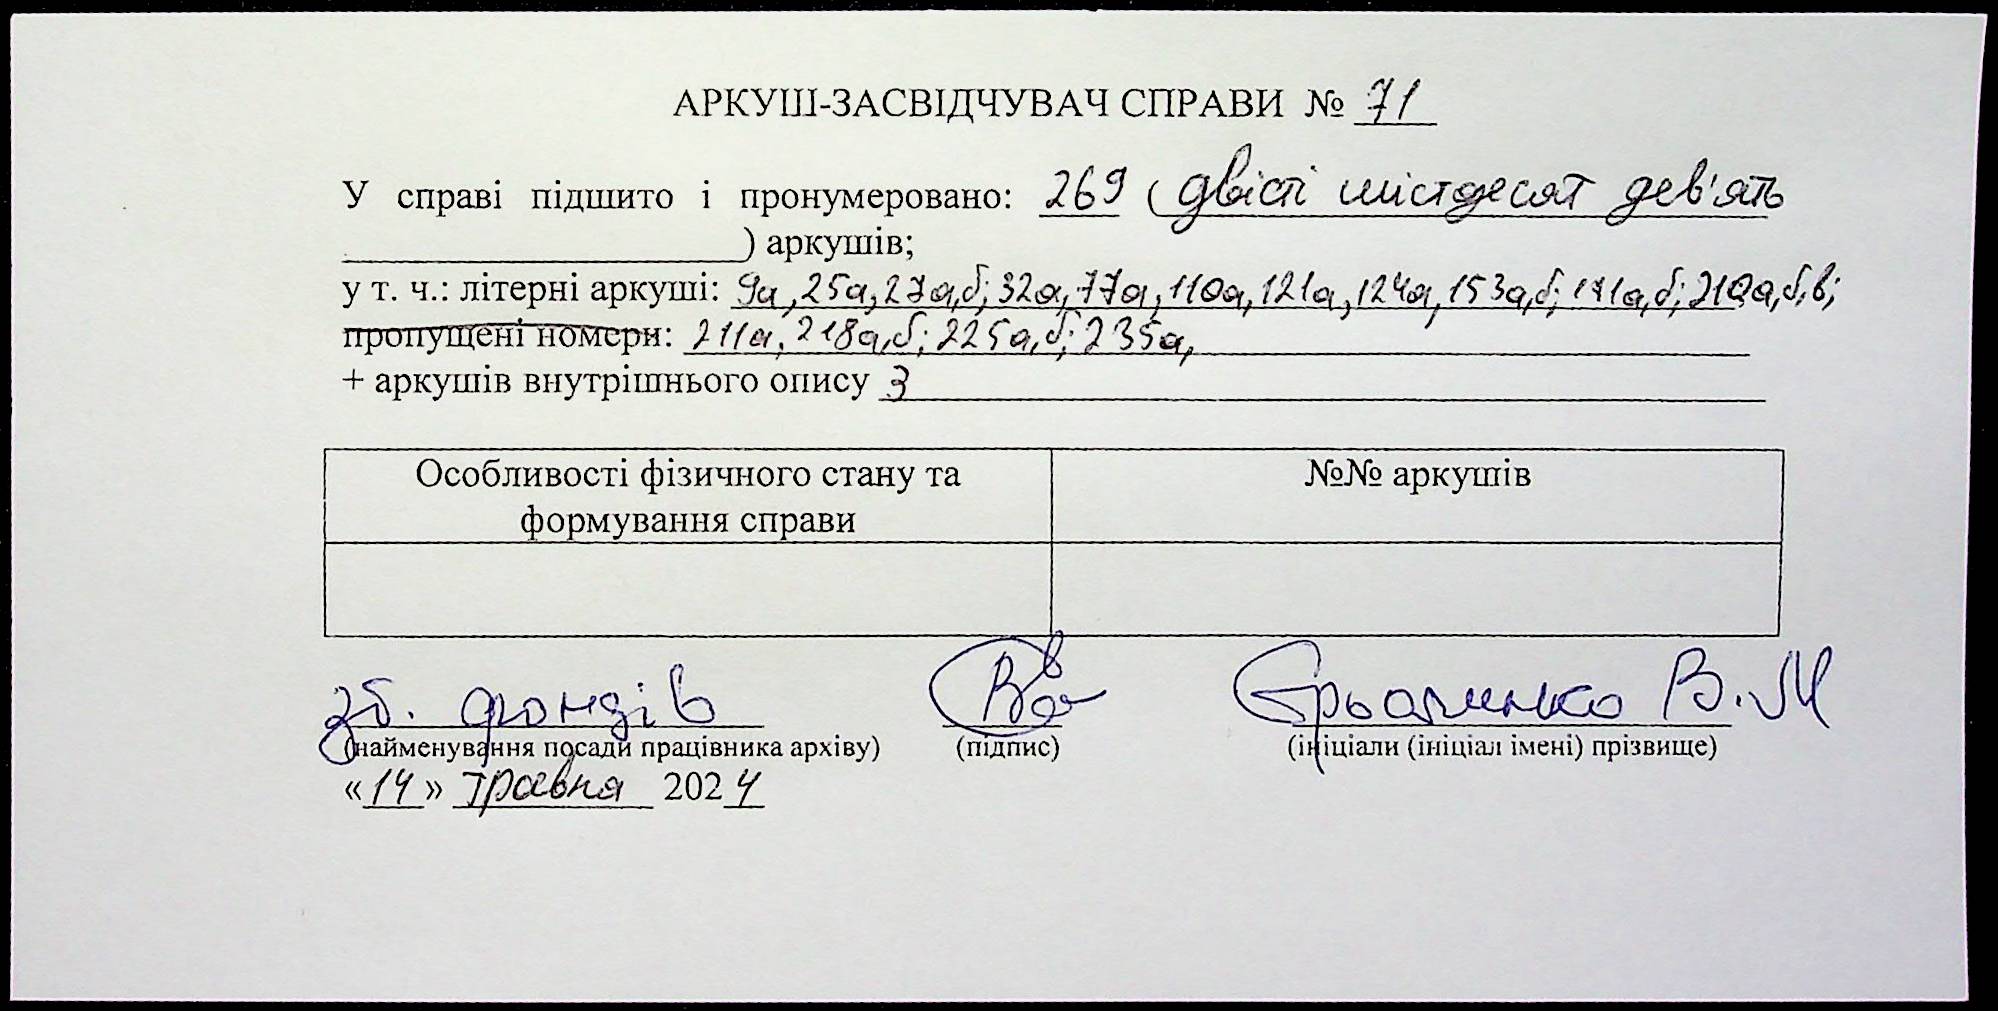 АРКУШ-ЗАСВІДЧУВАЧ СПРАВИ № 71
У справі підшито і пронумеровано: 269 (двісті шістдесят дев'ять
) аркушів;
у т. ч.: літерні аркуші: 9а, 25а, 27а,б; 32а, 77а, 110а, 121а, 124а, 153а,б; 171а,б; 210а,б,в;
пропущені номери: 211а, 218а,б; 225а,б; 235а,
+ аркушів внутрішнього опису 3
Особливості фізичного стану та
формування справи
№№ аркушів
зб. фондів В. М
(найменування посади працівника архіву) (підпис) (ініціали (ініціал імені) прізвище)
«14» травня 2024